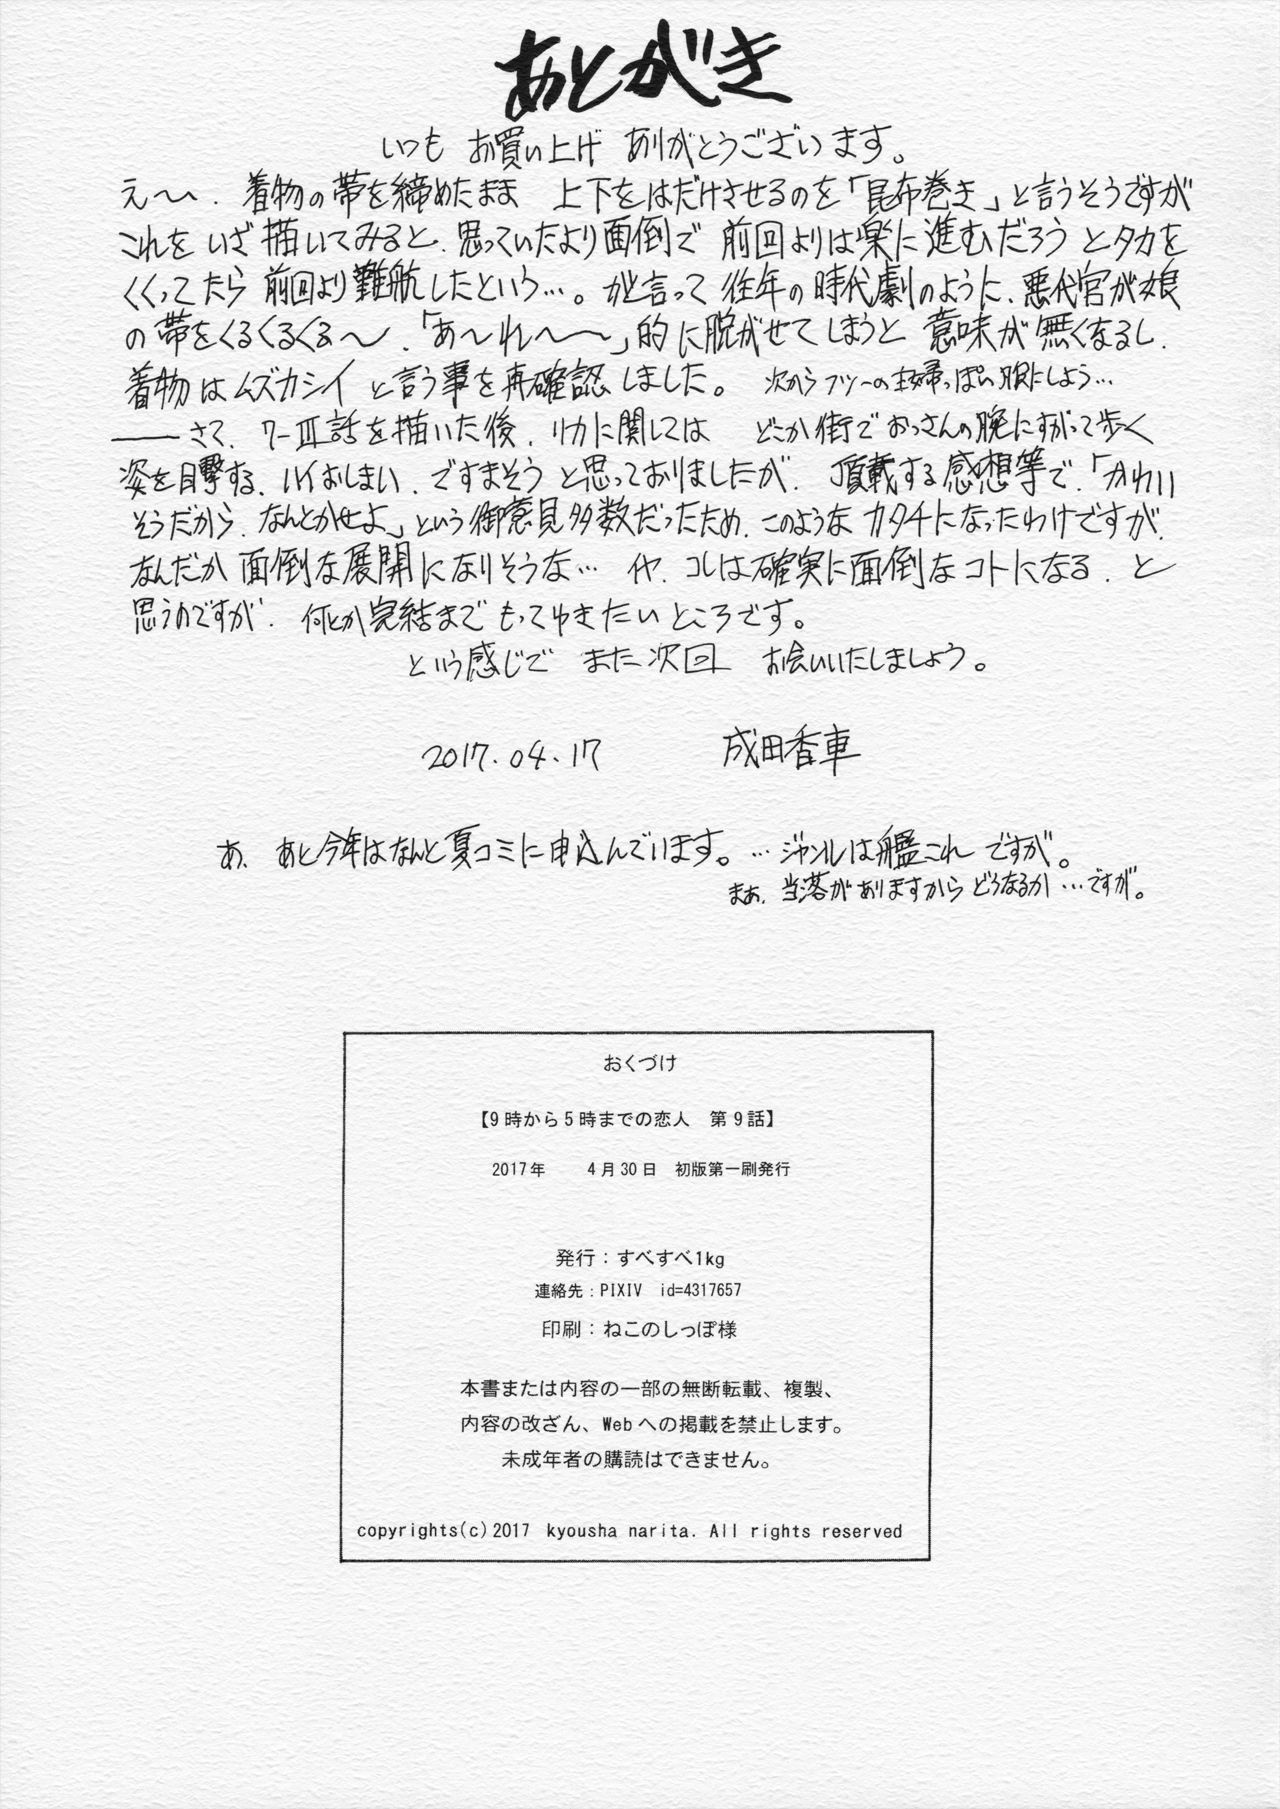 あとがき
いつも お買い上げ ありがとうございます。
え〜、着物の帯を締めたまま 上下をはだけさせるのを「昆布巻き」と言うそうですが
これを いざ描いてみると、思っていたより面倒で 前回よりは楽に進むだろう とタカを
くくってたら 前回より難航したという…。かと言って 往年の時代劇のように、悪代官が娘
の帯をくるくるくる〜、「あ〜れ〜〜」的に脱がせてしまうと 意味が無くなるし、
着物はムズカシイ と言う事を再確認しました。 次からフツーの主婦っぽい服にしよう…
――さて、7-Ⅲ話を描いた後、リカに関しては どこか街でおっさんの腕にすがって歩く
姿を目撃する、ハイおしまい、ですまそう と思っておりましたが、頂載する感想等で、「かわい
そうだから、なんとかせよ」という御意見多数だったため、このような カタチになったわけですが、
なんだか 面倒な展開になりそうな… イヤ、コレは確実に面倒なコトになる、と
思うのですが、何とか完結まで もってゆきたい ところです。
という感じで また次回 お会いいたしましょう。
2017.04.17 成田香車
あ、あと今年はなんと夏コミに申込んでいます。…ジャンルは艦これ ですが。
まあ、当落がありますから どうなるか …ですが。
おくづけ
【9時から5時までの恋人 第9話】
2017年 4月30日 初版第一刷発行
発行：すべすべ1kg
連絡先：PIXIV id=4317657
印刷：ねこのしっぽ様
本書または内容の一部の無断転載、複製、
内容の改ざん、Webへの掲載を禁止します。
未成年者の購読はできません。
copyrights(c)2017 kyousha narita. All rights reserved